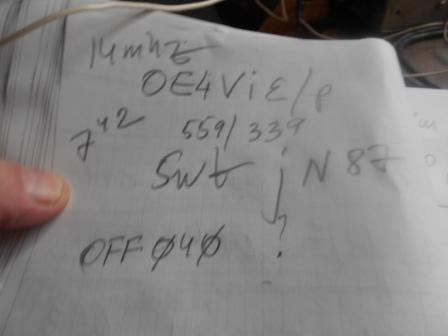 14mhz
OE4ViE/p
7⁴² 559/339
Swt jN87
OFFØ4Ø ?